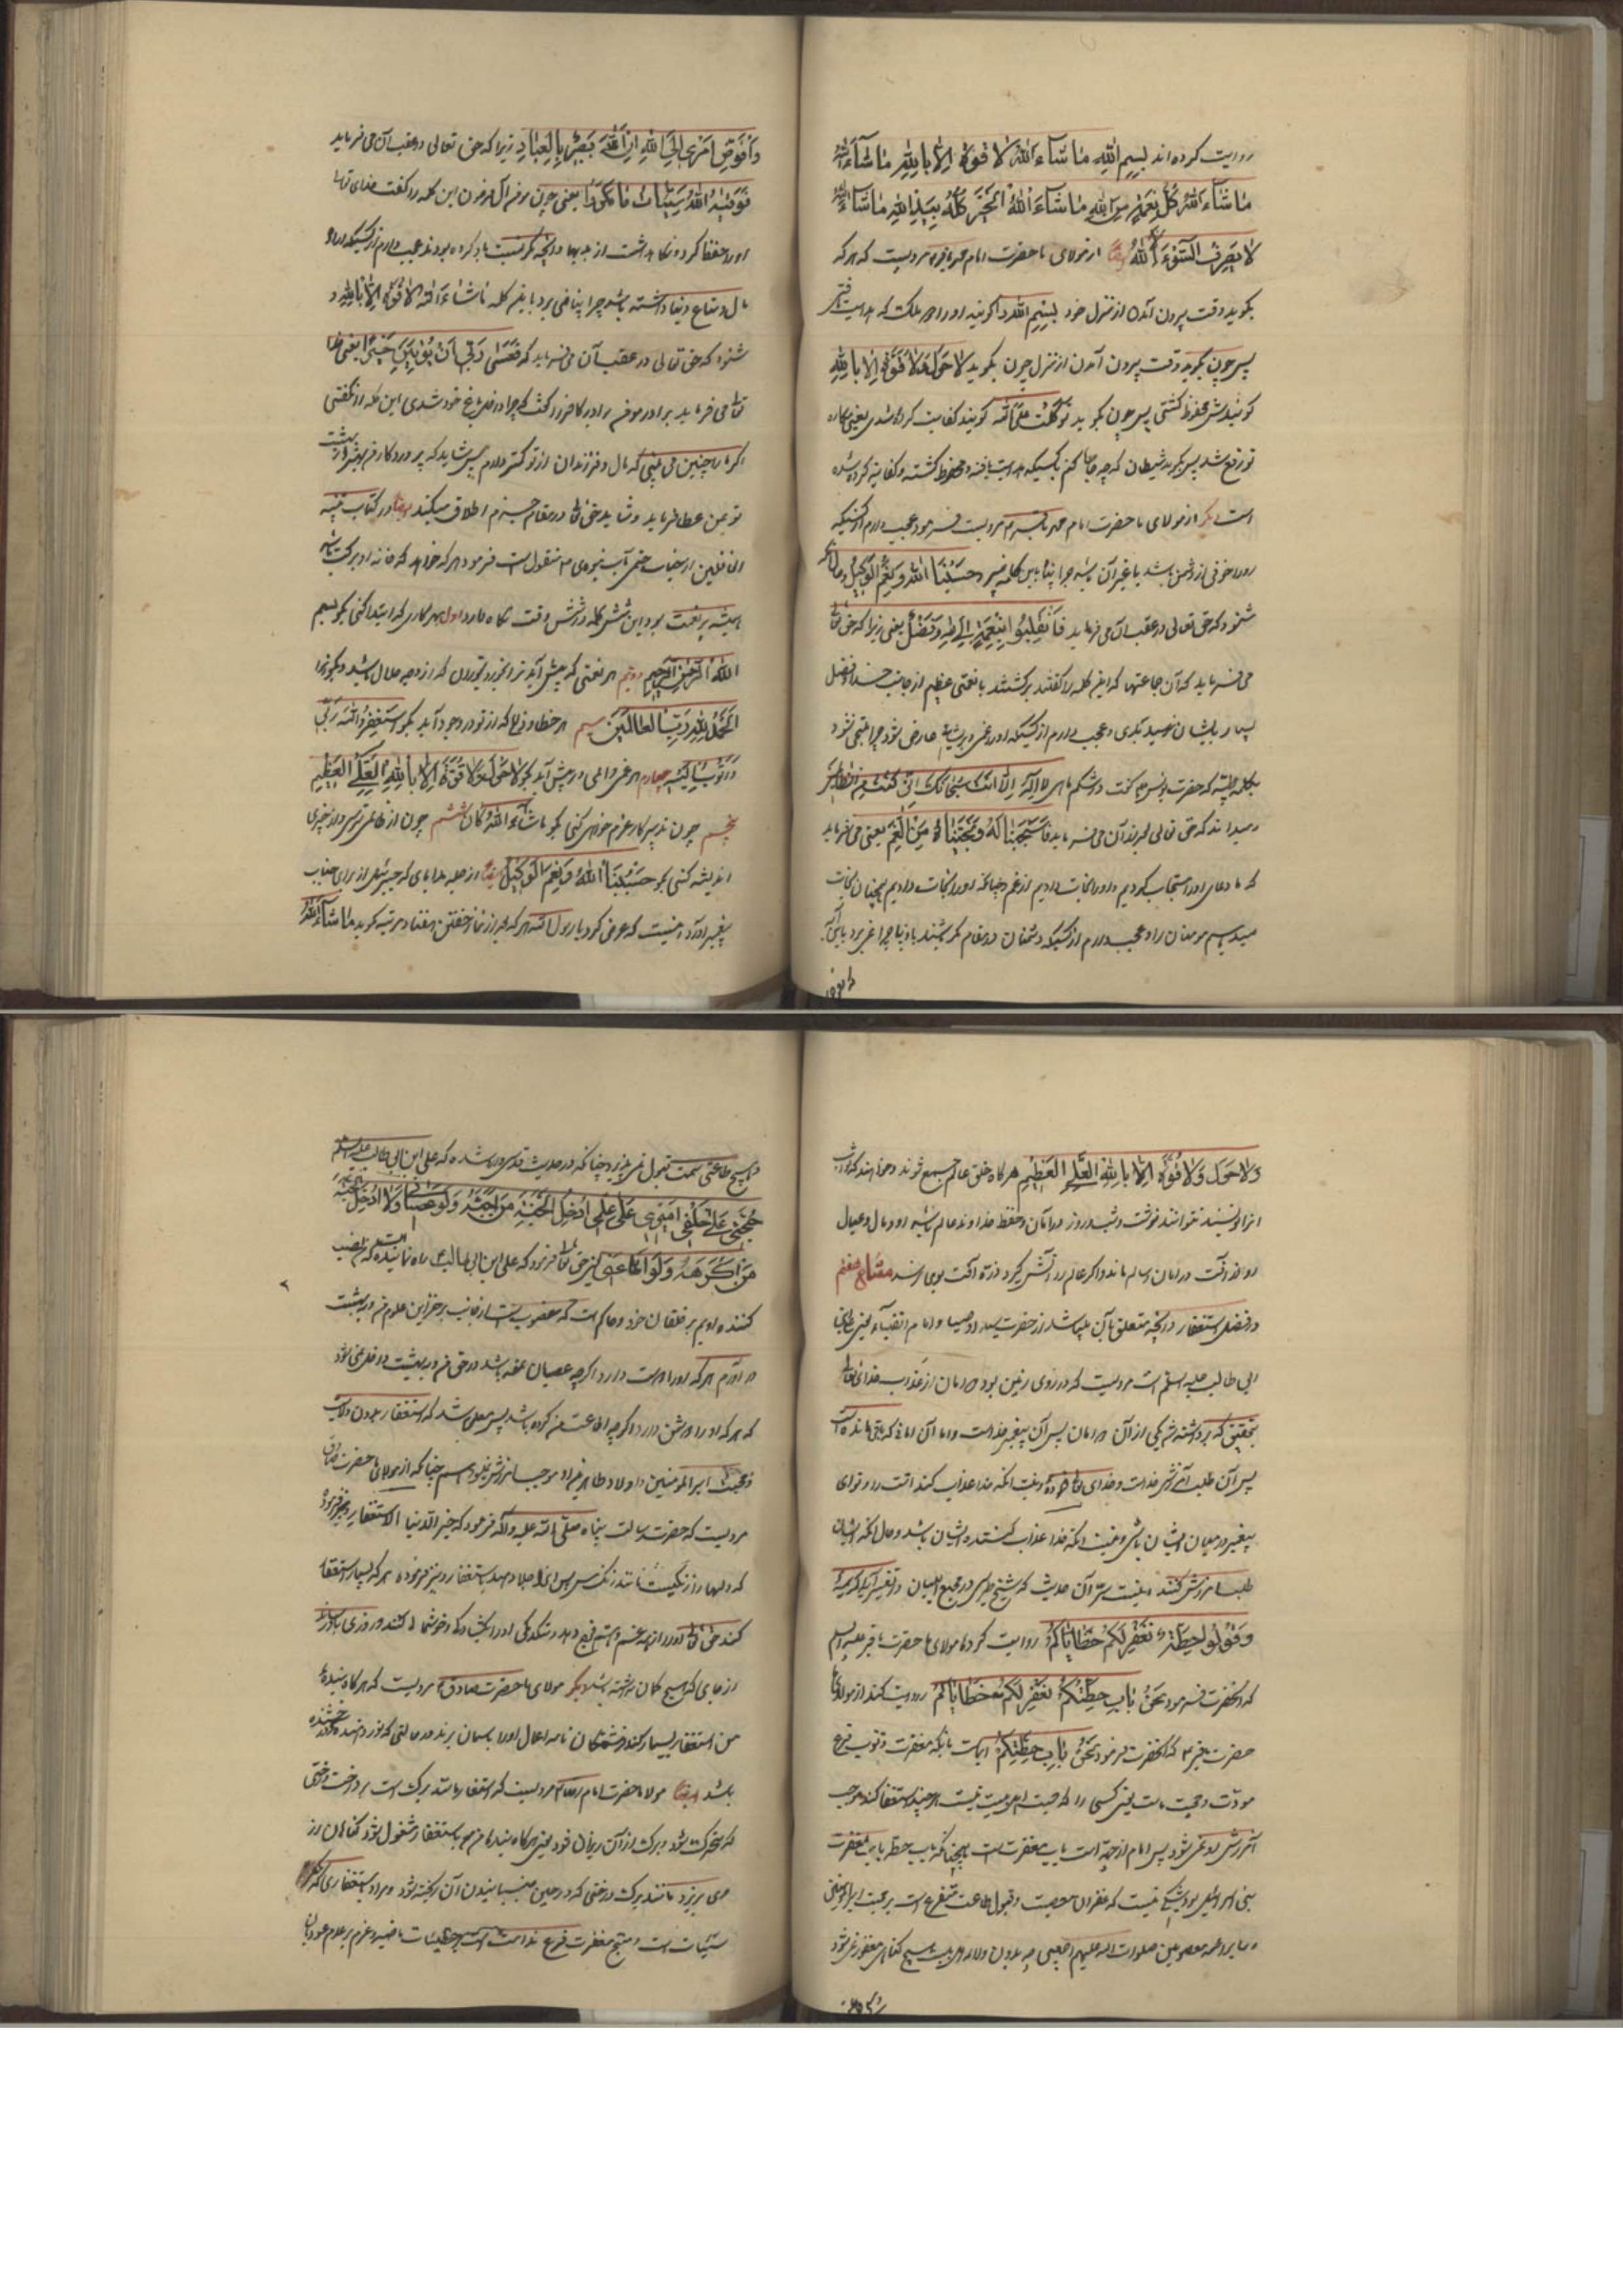 روایت کرده‌اند بِسْمِ اللهِ مَا شَاءَ اللهُ لَا قُوَّةَ اِلَّا بِاللهِ مَا شَاءَ اللهُ
مَا شَاءَ اللهُ كُلُّ نِعْمَةٍ مِنَ اللهِ مَا شَاءَ اللهُ اَلْخَيْرُ كُلُّهُ بِيَدِ اللهِ مَا شَاءَ اللهُ
لَا يَصْرِفُ السُّوْءَ اِلَّا اللهُ ایضا از مولای ما حضرت امام محمد باقر مرویست که هر که
بگوید وقت بیرون آمدن از منزل خود بِسْمِ اللهِ گویند او را دو ملک که هدایت یافتی
پس چون بگوید وقت بیرون آمدن از منزل چون بگوید لَا حَوْلَ وَلَا قُوَّةَ اِلَّا بِاللهِ
گویندش محفوظ گشتی پس چون بگوید تَوَكَّلْتُ عَلَى اللهِ گویند کفایت کرده شدی یعنی مکاره
تو رفع شد پس گوید شیطان که چه حال کنم با کسیکه هدایت یافته و محفوظ گشته و کفایه کرده شده
است دیگر از مولای ما حضرت امام محمد باقر مرویست فرمود عجب دارم از کسیکه
او را خوفی از دشمن باشد یا غیر آن باشد چرا پناه باین کلمه نمیبرد حَسْبُنَا اللهُ وَنِعْمَ الْوَكِيلُ و حال آنکه
شنود که حق تعالی در عقب آن می‌فرماید فَانْقَلَبُوا بِنِعْمَةٍ مِنَ اللهِ وَفَضْلٍ یعنی زیرا که حق تعالی
می‌فرماید که آن جماعتها که این کلمه را گفتند برگشتند با نعمتی عظیم از جانب خدا و فضل
بسیار بایشان نرسید بدی و عجب دارم از کسیکه او را غمی و پریشانی عارض شود چرا ملتجی نشود
بکلمه طیبه که حضرت یونس گفت در شکم ماهی لَا اِلٰهَ اِلَّا اَنْتَ سُبْحَانَكَ اِنِّي كُنْتُ مِنَ الظَّالِمِينَ
نمیداند که حق تعالی بعد از آن می‌فرماید فَاسْتَجَبْنَا لَهُ وَنَجَّيْنَاهُ مِنَ الْغَمِّ یعنی می‌فرماید
که ما دعای او را استجاب کردیم و او را نجات دادیم از غم و چنانکه او را نجات دادیم همچنان نجات
میدهیم مومنان را و عجب دارم از کسیکه دشمنان در مقام مکر باشند با او چرا نمی‌برد باین آیه
وافوض
وَاُفَوِّضُ اَمْرِي اِلَى اللهِ اِنَّ اللهَ بَصِيرٌ بِالْعِبَادِ زیرا که حق تعالی در عقب آن می‌فرماید
فَوَقٰيهُ اللهُ سَيِّئَاتِ مَا مَكَرُوا یعنی چون مومن آل فرعون این کلمه را گفت خدای تعالی
او را حفظ کرد و نگاه داشت از بدیها و آنچه مکر نسبت باو کرده بودند عجب دارم از کسیکه اراده
مال و متاع دنیا داشته باشد چرا پناه نمی‌برد باین کلمه مَا شَاءَ اللهُ لَا قُوَّةَ اِلَّا بِاللهِ و
شنود که حق تعالی در عقب آن می‌فرماید که فَعَسٰى رَبِّي اَنْ يُؤْتِيَنِ خَيْرًا یعنی خدای
تعالی می‌فرماید برادر مومن برادر کافر را گفت که چرا در باغ خود شدی این کلمه را نگفتی
اگر مرا چنین می‌بینی که مال و فرزندان از تو کمتر دارم پس شاید که پروردگار من بهتر از بهشت
تو بمن عطا فرماید و شاید حق تعالی در مقام جزم اطلاق میکند ایضا در کتاب تنبیه
الغافلین از جناب ختمی مآب نبوی منقول است فرمود هر که خواهد که خانه او برکت باشد
همیشه پر نعمت بود این شش کلمه در شش وقت نگاه دارد اول هر کاری که ابتدا کنی بگو بسم
اللهِ الرَّحْمٰنِ الرَّحِيمِ دویم هر نعمتی که پیش آید ترا بخور و بخوران که از وجه حلال باشد و بگو
اَلْحَمْدُ لِلّٰهِ رَبِّ الْعَالَمِينَ سیم هر خطا و زلل که از تو در وجود آید بگو اَسْتَغْفِرُ اللهَ رَبِّي
وَاَتُوبُ اِلَيْهِ چهارم هر غمی و المی در پیش آید بگو لَا حَوْلَ وَلَا قُوَّةَ اِلَّا بِاللهِ الْعَلِيِّ الْعَظِيمِ
پنجم چون تدبیر کار عزم خواهی کنی بگو مَا شَاءَ اللهُ كَانَ ششم چون از ظالمی ترسی و از چیزی
اندیشه کنی بگو حَسْبُنَا اللهُ وَنِعْمَ الْوَكِيلُ ایضا از جمله هدایای که جبرئیل از برای جناب
پیغمبر آورد اینست که عرض کرد یا رسول الله هر که بعد از نماز خفتن هفتاد مرتبه گوید مَا شَاءَ اللهُ
وَلَا حَوْلَ وَلَا قُوَّةَ اِلَّا بِاللهِ الْعَلِيِّ الْعَظِيمِ هر گاه خلق عالم جمع شوند و خواهند که ثواب
آنرا نویسند نتوانند نوشت و شب و روز در امان و حفظ خداوند عالم باشد او و مال و عیال
او از آفت در امان سالم ماند و اگر عالم را آتش گیرد ذره آفت بوی نرسد مفتاح هفتم
در فضل استغفار و آنچه متعلق بآن باشد از حضرت سید اوصیا و امام اتقیاء یعنی علی بن
ابی طالب علیه السلام است مرویست که در روی زمین بود دو امان از عذاب خدای تعالی
بتحقیق که برداشته شد یکی از آن دو امان پس آن پیغمبر خداست و اما آن امانی که باقی مانده است
پس آن طلب آمرزش خداست و خدای تعالی فرموده و نیست آنکه خدا عذاب کند امت را و تو ای
پیغمبر در میان ایشان باشی و نیست آنکه خدا عذاب کننده ایشان باشد و حال آنکه ایشان
طلب آمرزش کنند و نیست سر آن حدیث که شیخ طبرسی در مجمع البیان در تفسیر آیه کریمه
وَقُولُوا حِطَّةٌ نَغْفِرْ لَكُمْ خَطَايَاكُمْ روایت کرده مولای ما حضرت باقر علیه السلام
که آنحضرت فرمود نَحْنُ بَابُ حِطَّتِكُمْ نَغْفِرْ لَكُمْ خَطَايَاكُمْ روایت کنند از مولای ما
حضرت باقر که آنحضرت فرمود نَحْنُ بَابُ حِطَّتِكُمْ اینست بآنکه مغفرت ذنوب فرع
مودت و محبت ماست یعنی کسی را که محبت اهل بیت نیست هر چند استغفار کند موجب
آمرزش او نمی‌شود پس امام از جهة است باب مغفرت است همچنانکه باب حطه باب مغفرت
بنی اسرائیل بود شکی نیست که غفران معصیت و قبول طاعت متفرع است بر محبت امیر المومنین
و سایر ائمه معصومین صلوات الله علیهم اجمعین چه بدون ولای اهل بیت هیچ گناهی مغفور نمی‌شود
و هیچ طاعتی سمت قبول نمی‌پذیرد چنانکه در حدیث قدسی وارد شده که علی ابن ابی طالب علیه السلام
حُجَّتِي عَلٰى خَلْقِي اَمِينِي عَلٰى عِلْمِي اُدْخِلُ الْجَنَّةَ مَنْ اَحَبَّهُ وَلَوْ عَصَانِي وَلَا اُدْخِلُ الْجَنَّةَ
مَنْ اَكْرَهَهُ وَلَوْ اَطَاعَنِي یعنی حق تعالی فرمود که علی ابن ابی طالب راه نماینده که نصب
کننده اویم بر خلقان خود و حاکم است که منصوب است از جانب من بر خزاین علوم من و در بهشت
در آورم هر که او را دوست دارد اگرچه عصیان کرده باشد در حق من و در بهشت داخل نمی‌شود
که هر که او را دشمن دارد و اگرچه اطاعت من کرده باشد پس معلوم شد که استغفار بدون ولایت
و محبت امیر المومنین و اولاد طاهرین او موجب آمرزش نیست چنانکه از مولای ما حضرت صادق
مرویست که حضرت رسالت پناه صلی الله علیه و آله فرمود که خیر الدنیا الاستغفار و نیز فرمود
که دلها را زنگیست مانند زنگ مس پس آنرا جلا دهید باستغفار و نیز فرموده هر که بسیار استغفار
کند حق تعالی او را از همه غم و هم فرج دهد و تنگدلی او را بگشاید و خوشحال کند و روزی باو رساند
از جای که هیچ گمان نداشته باشد دیگر مولای ما حضرت صادق مرویست که هر گاه بندهٔ
من استغفار بسیار کند فرشتگان نامه اعمال او را باسمان برند در حالتی که نور دهنده و درخشنده
باشد ایضا مولانا حضرت امام رضا مرویست که استغفار مانند برگ است بر درخت درختی
که متحرک شود و برگ از آن ریزان شود یعنی هر گاه بنده مومن باستغفار مشغول شود گناهان از
وی بریزد مانند برگ درختی که در حین جنبانیدن آن ریخته شود و مراد باستغفاری که
سیئات است و منتج مغفرت فرع ندامت است بر خطیئات ماضیه و عزم بر عدم عود بآن